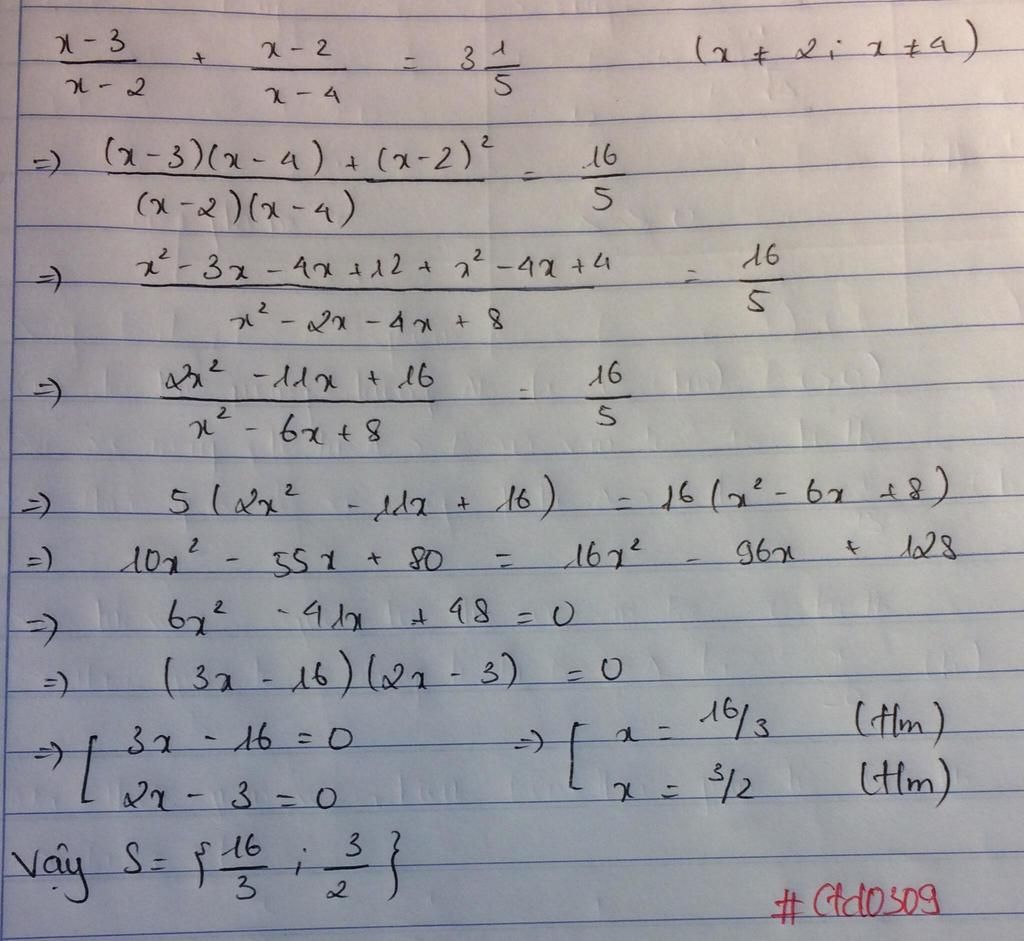 (x-3)/(x-2) + (x-2)/(x-4) = 3 1/5 (x ≠ 2; x ≠ 4)
=> ((x-3)(x-4) + (x-2)²)/((x-2)(x-4)) = 16/5
=> (x² - 3x - 4x + 12 + x² - 4x + 4)/(x² - 2x - 4x + 8) = 16/5
=> (2x² - 11x + 16)/(x² - 6x + 8) = 16/5
=> 5(2x² - 11x + 16) = 16(x² - 6x + 8)
=> 10x² - 55x + 80 = 16x² - 96x + 128
=> 6x² - 41x + 48 = 0
=> (3x - 16)(2x - 3) = 0
=> [ 3x - 16 = 0 => [ x = 16/3 (t/m)
2x - 3 = 0 x = 3/2 (t/m)
Vậy S = {16/3 ; 3/2}
# Ctd0309